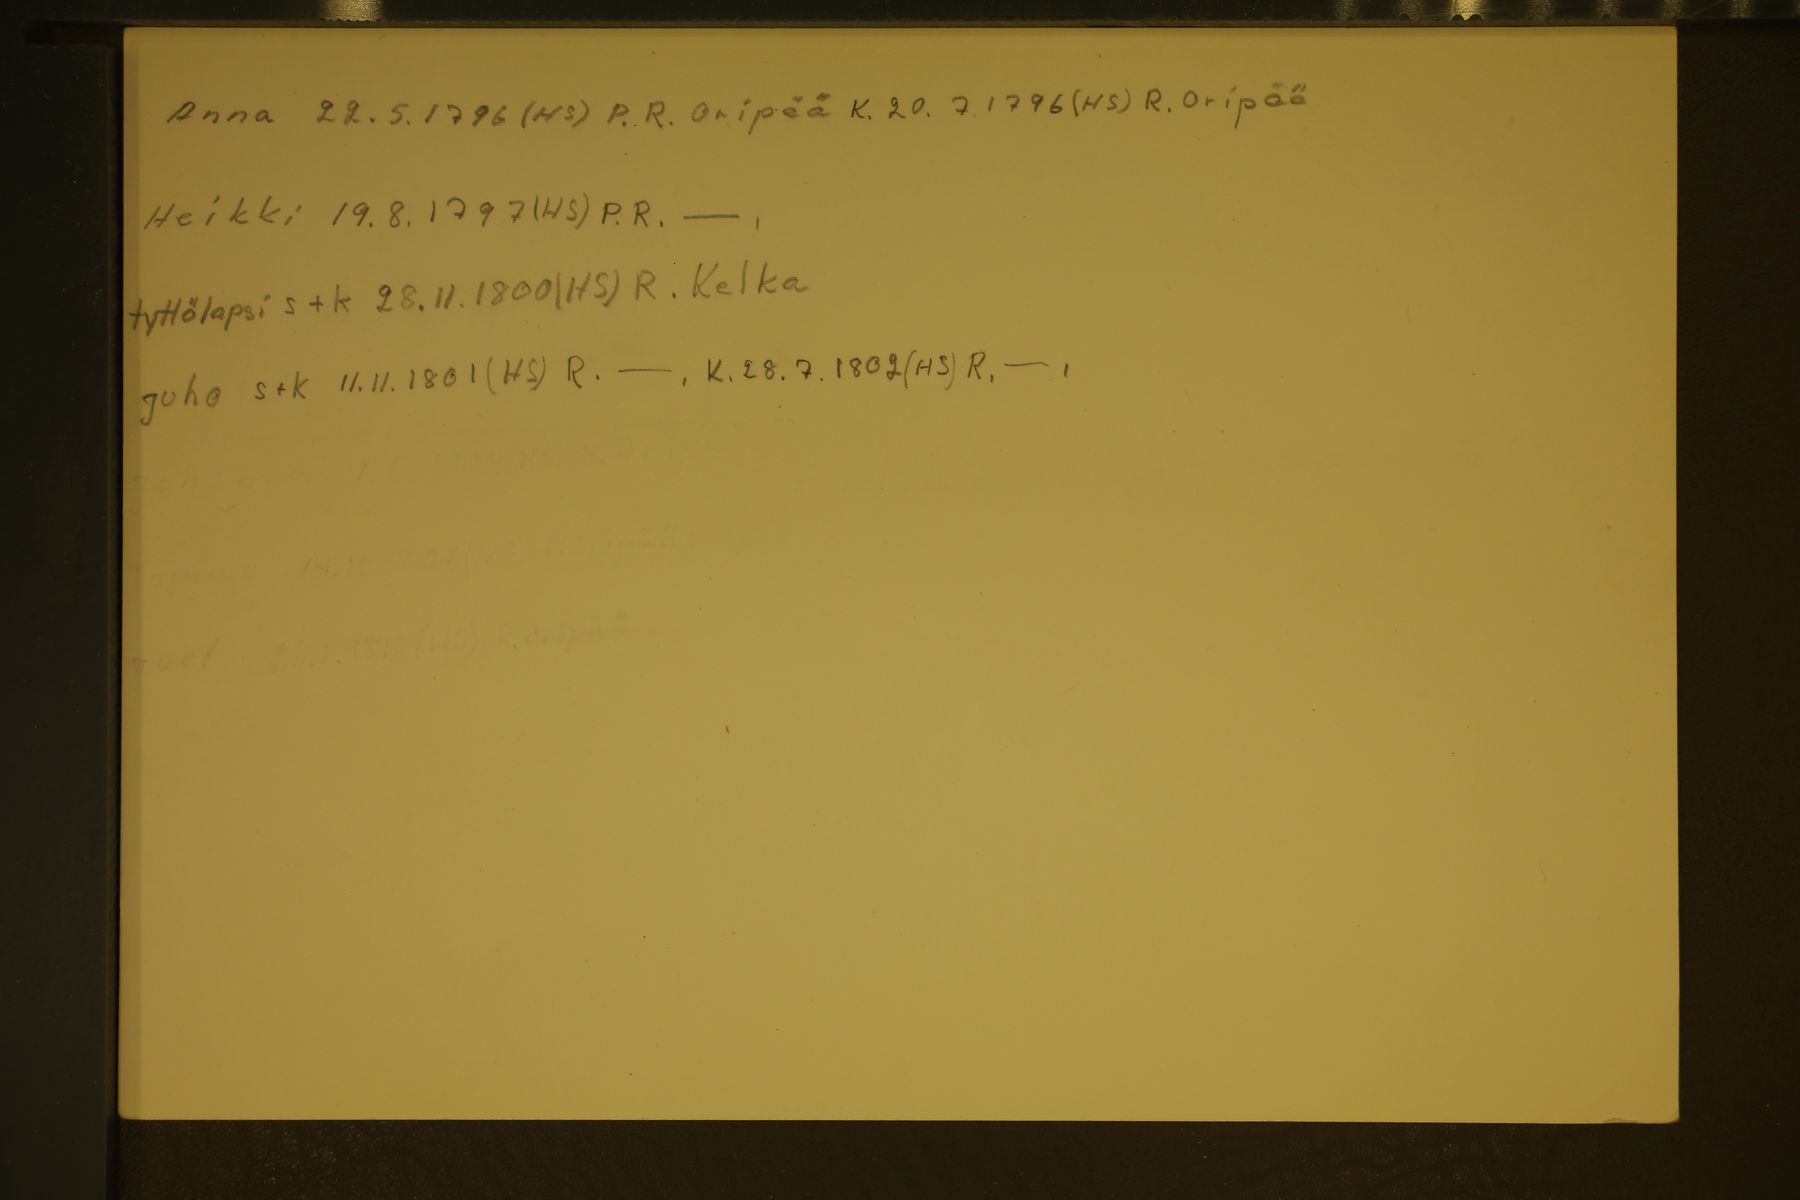 Anna 22.5.1796 (HS) P.R. Oripää K. 20. 7. 1796 (HS) R. Oripää
Heikki 19.8.1797 (HS) P.R. —,
tyttölapsi s+k 28.11.1800 (HS) R. Kelka
Juho s+k 11.11.1801 (HS) R. —, K. 28.7.1802 (HS) R. —,
(HS)
(HS) R. Oripää
(HS) R. Oripää